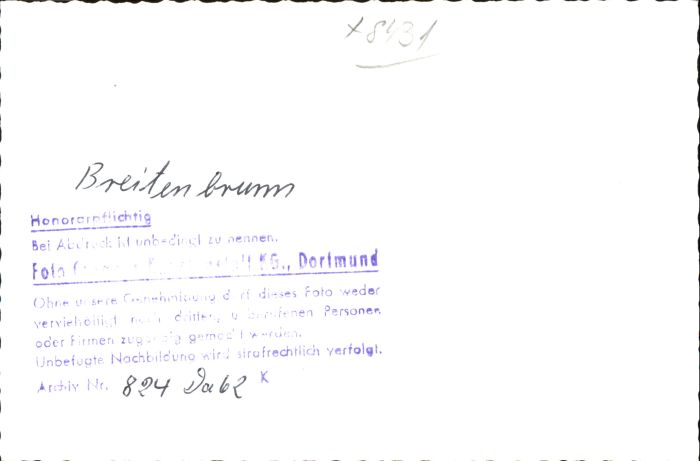 x8431
Breitenbrunn
Honorarpflichtig
Bei Abdruck ist unbedingt zu nennen.
Foto KG., Dortmund
Ohne unsere Genehmigung darf dieses Foto weder
vervielfältigt noch dritten, unberufenen Personen
oder Firmen zugängig gemacht werden.
Unbefugte Nachbildung wird strafrechtlich verfolgt.
Archiv Nr. 824 Da62 K